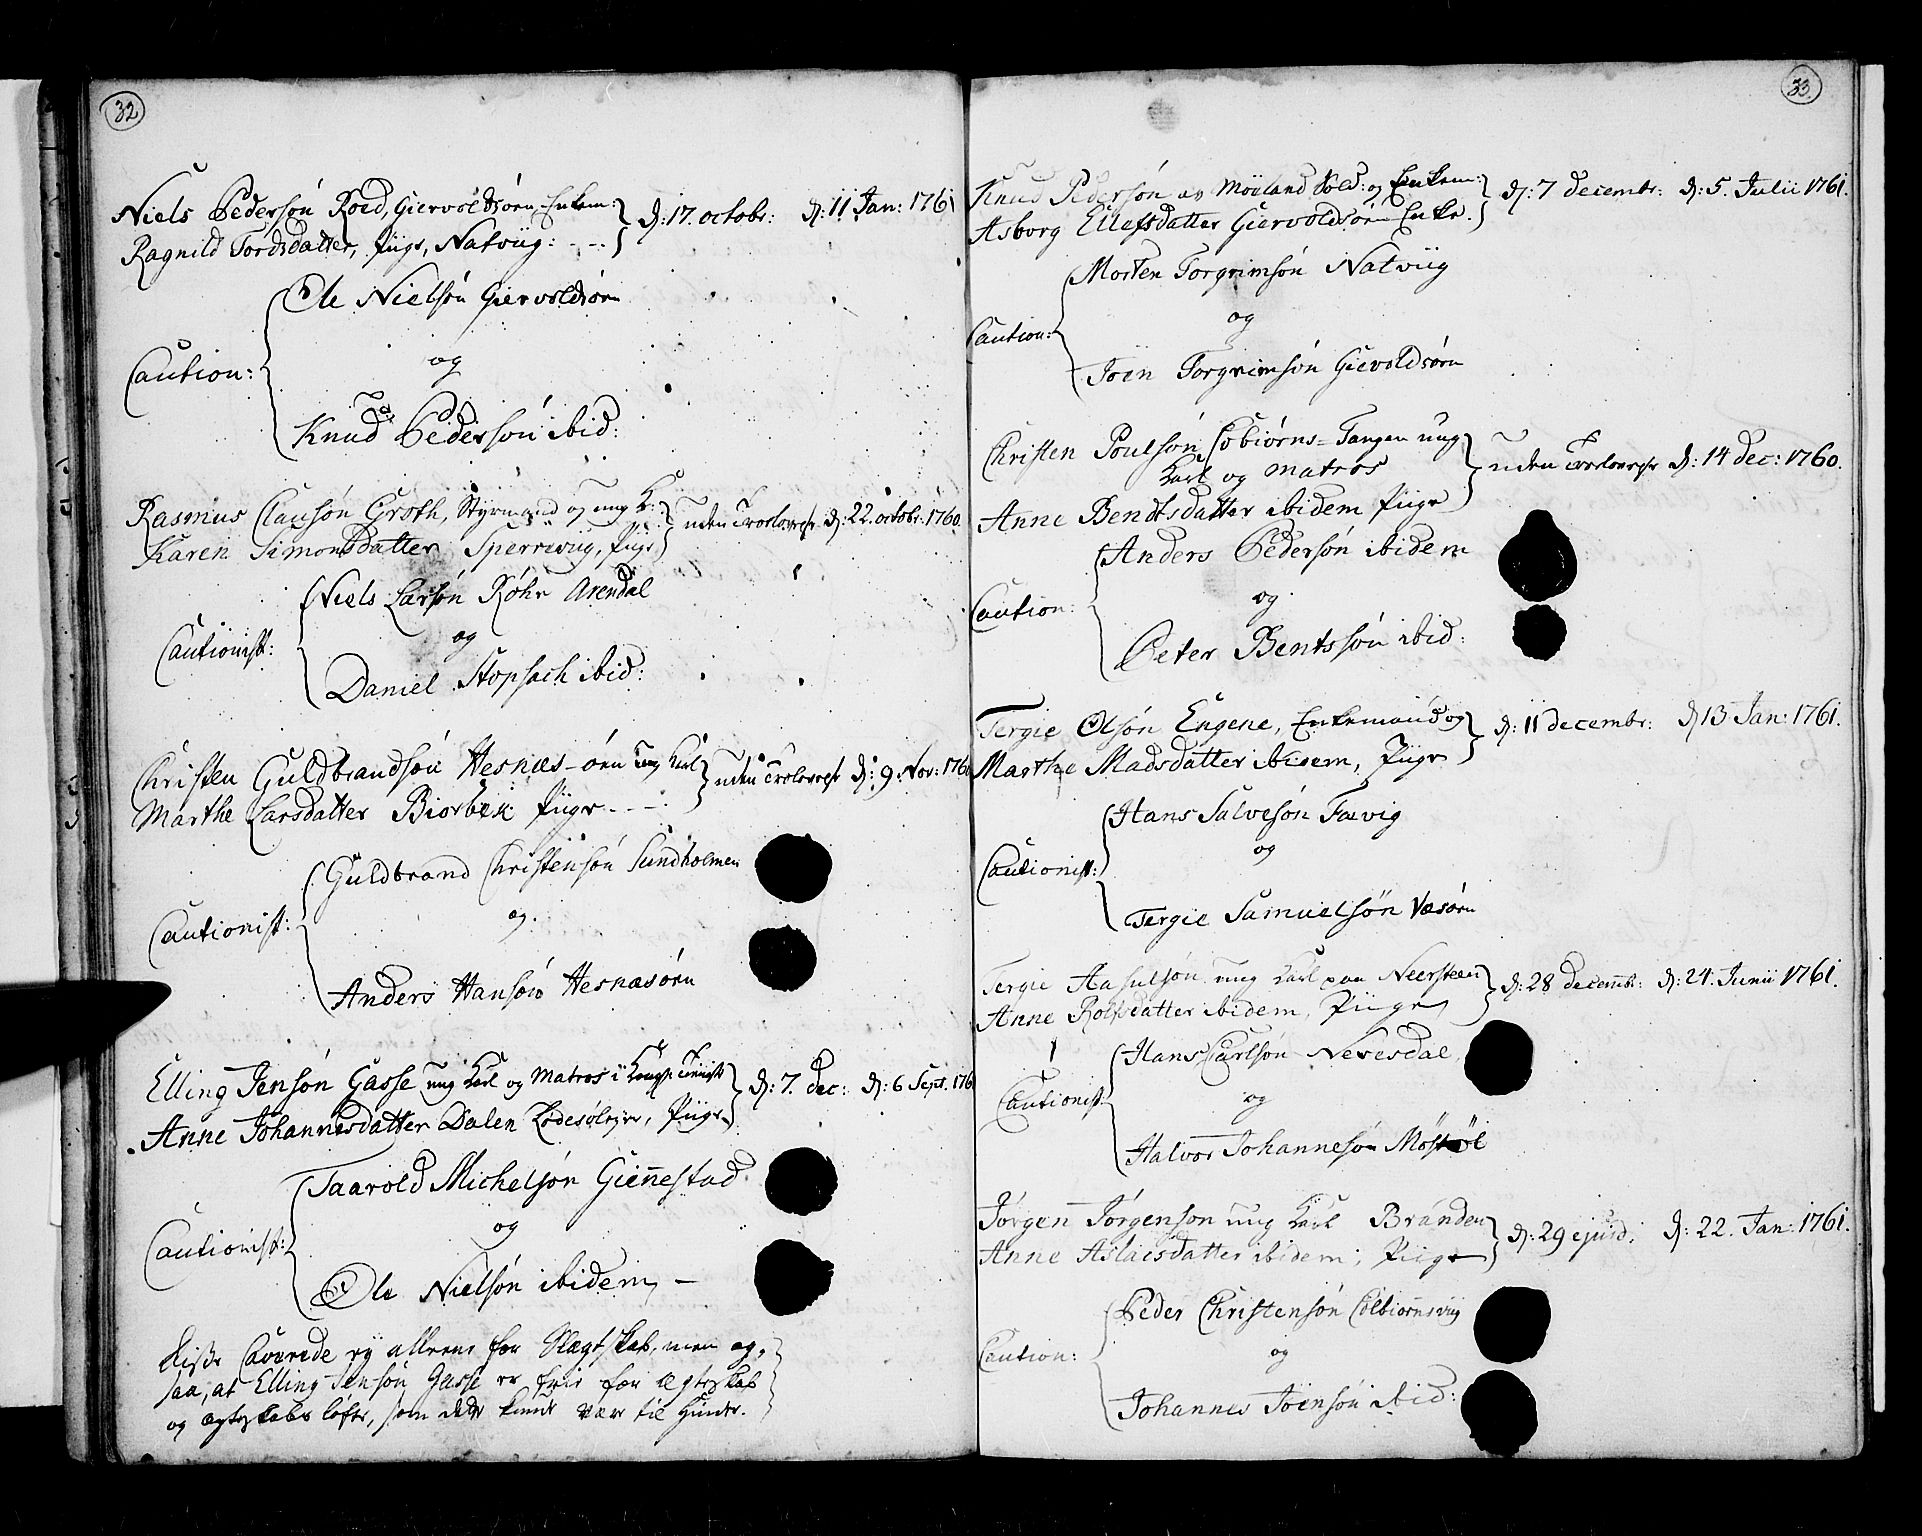 32
Niels Pedersøn Roed, Giervoldsørn Enkem: d: 17. octobr: d: 11 Jan: 1761
Ragnild Tordsdatter, Piige, Natviig:
Ole Nielsøn Giervoldsørn
Caution: og
Knud Pedersøn ibid:
Rasmus Clausøn Groth, Styrmand og ung K: uden Trolovelse d: 22. octobr: 1760.
Karen Simonsdatter Sperreviig, Piige
Niels Larsøn Røhr Arendal
Cautionist: og
Daniel Stopsach ibid:
Christen Guldbrandsøn Hesnæs-øen ung Karl uden Trolovelse d: 9. Nov: 176
Marthe Larsdatter Biorbek Piige
Guldbrand Christensøn Sundholmen
Cautionist: og
Anders Hansøn Hesnæsørn
Elling Jensøn Gasse ung Karl og Matros i Kongl: Tieniste d: 7. Dec: d: 6 Sept. 176
Anne Johannesdatter Dalen, Piige
Taarold Michelsøn Giennestad
Cautionist: og
Ole Nielsøn ibidem
Disse Caverede ey alleene for Slægtskab, men og-
saa, at Elling Jensøn Gasse er frie for ægteskab
og ægteskabs løfte, som dette kunde være til Hinder.
33.
Knud Pedersøn av Møyland Sold: og Enkem: d: 7 decembr: d: 5. Julii 1761.
Asborg Ellefsdatter Giervoldsørn Enke.
Morten Torgrimsøn Natviig
Caution: og
Joen Torgrimsøn Gievoldsørn
Christen Poulsøn, Cobiørns-Tangen ung
Karl og Matros uden Trolovelse d: 14 Dec: 1760.
Anne Bendtsdatter ibidem Piige
Anders Pedersøn ibidem
Caution: og
Peter Bentssøn ibid:
Tergie Olsøn Engene, Enkemand og d: 11 decembr: d 13 Jan: 1761.
Marthe Madsdatter ibidem, Piige
Hans Salvesøn Fævig
Cautionist: og
Tergie Samuelsøn Væsørn
Tergie Aasulsøn ung Karl paa Neersteen d: 28 decembr: d: 24. Junii 1761.
Anne Rolfsdatter ibidem, Piige
Hans Carlsøn Nevesdal
Cautionist: og
Halvor Johannesøn
Jørgen Jørgensøn ung Karl Brånden d: 29 ejusd. d: 22. Jan: 1761.
Anne Aslacsdatter ibidem, Piige
Peder Christensøn Colbiørnsviig
Caution: og
Johannes Joensøn ibid: